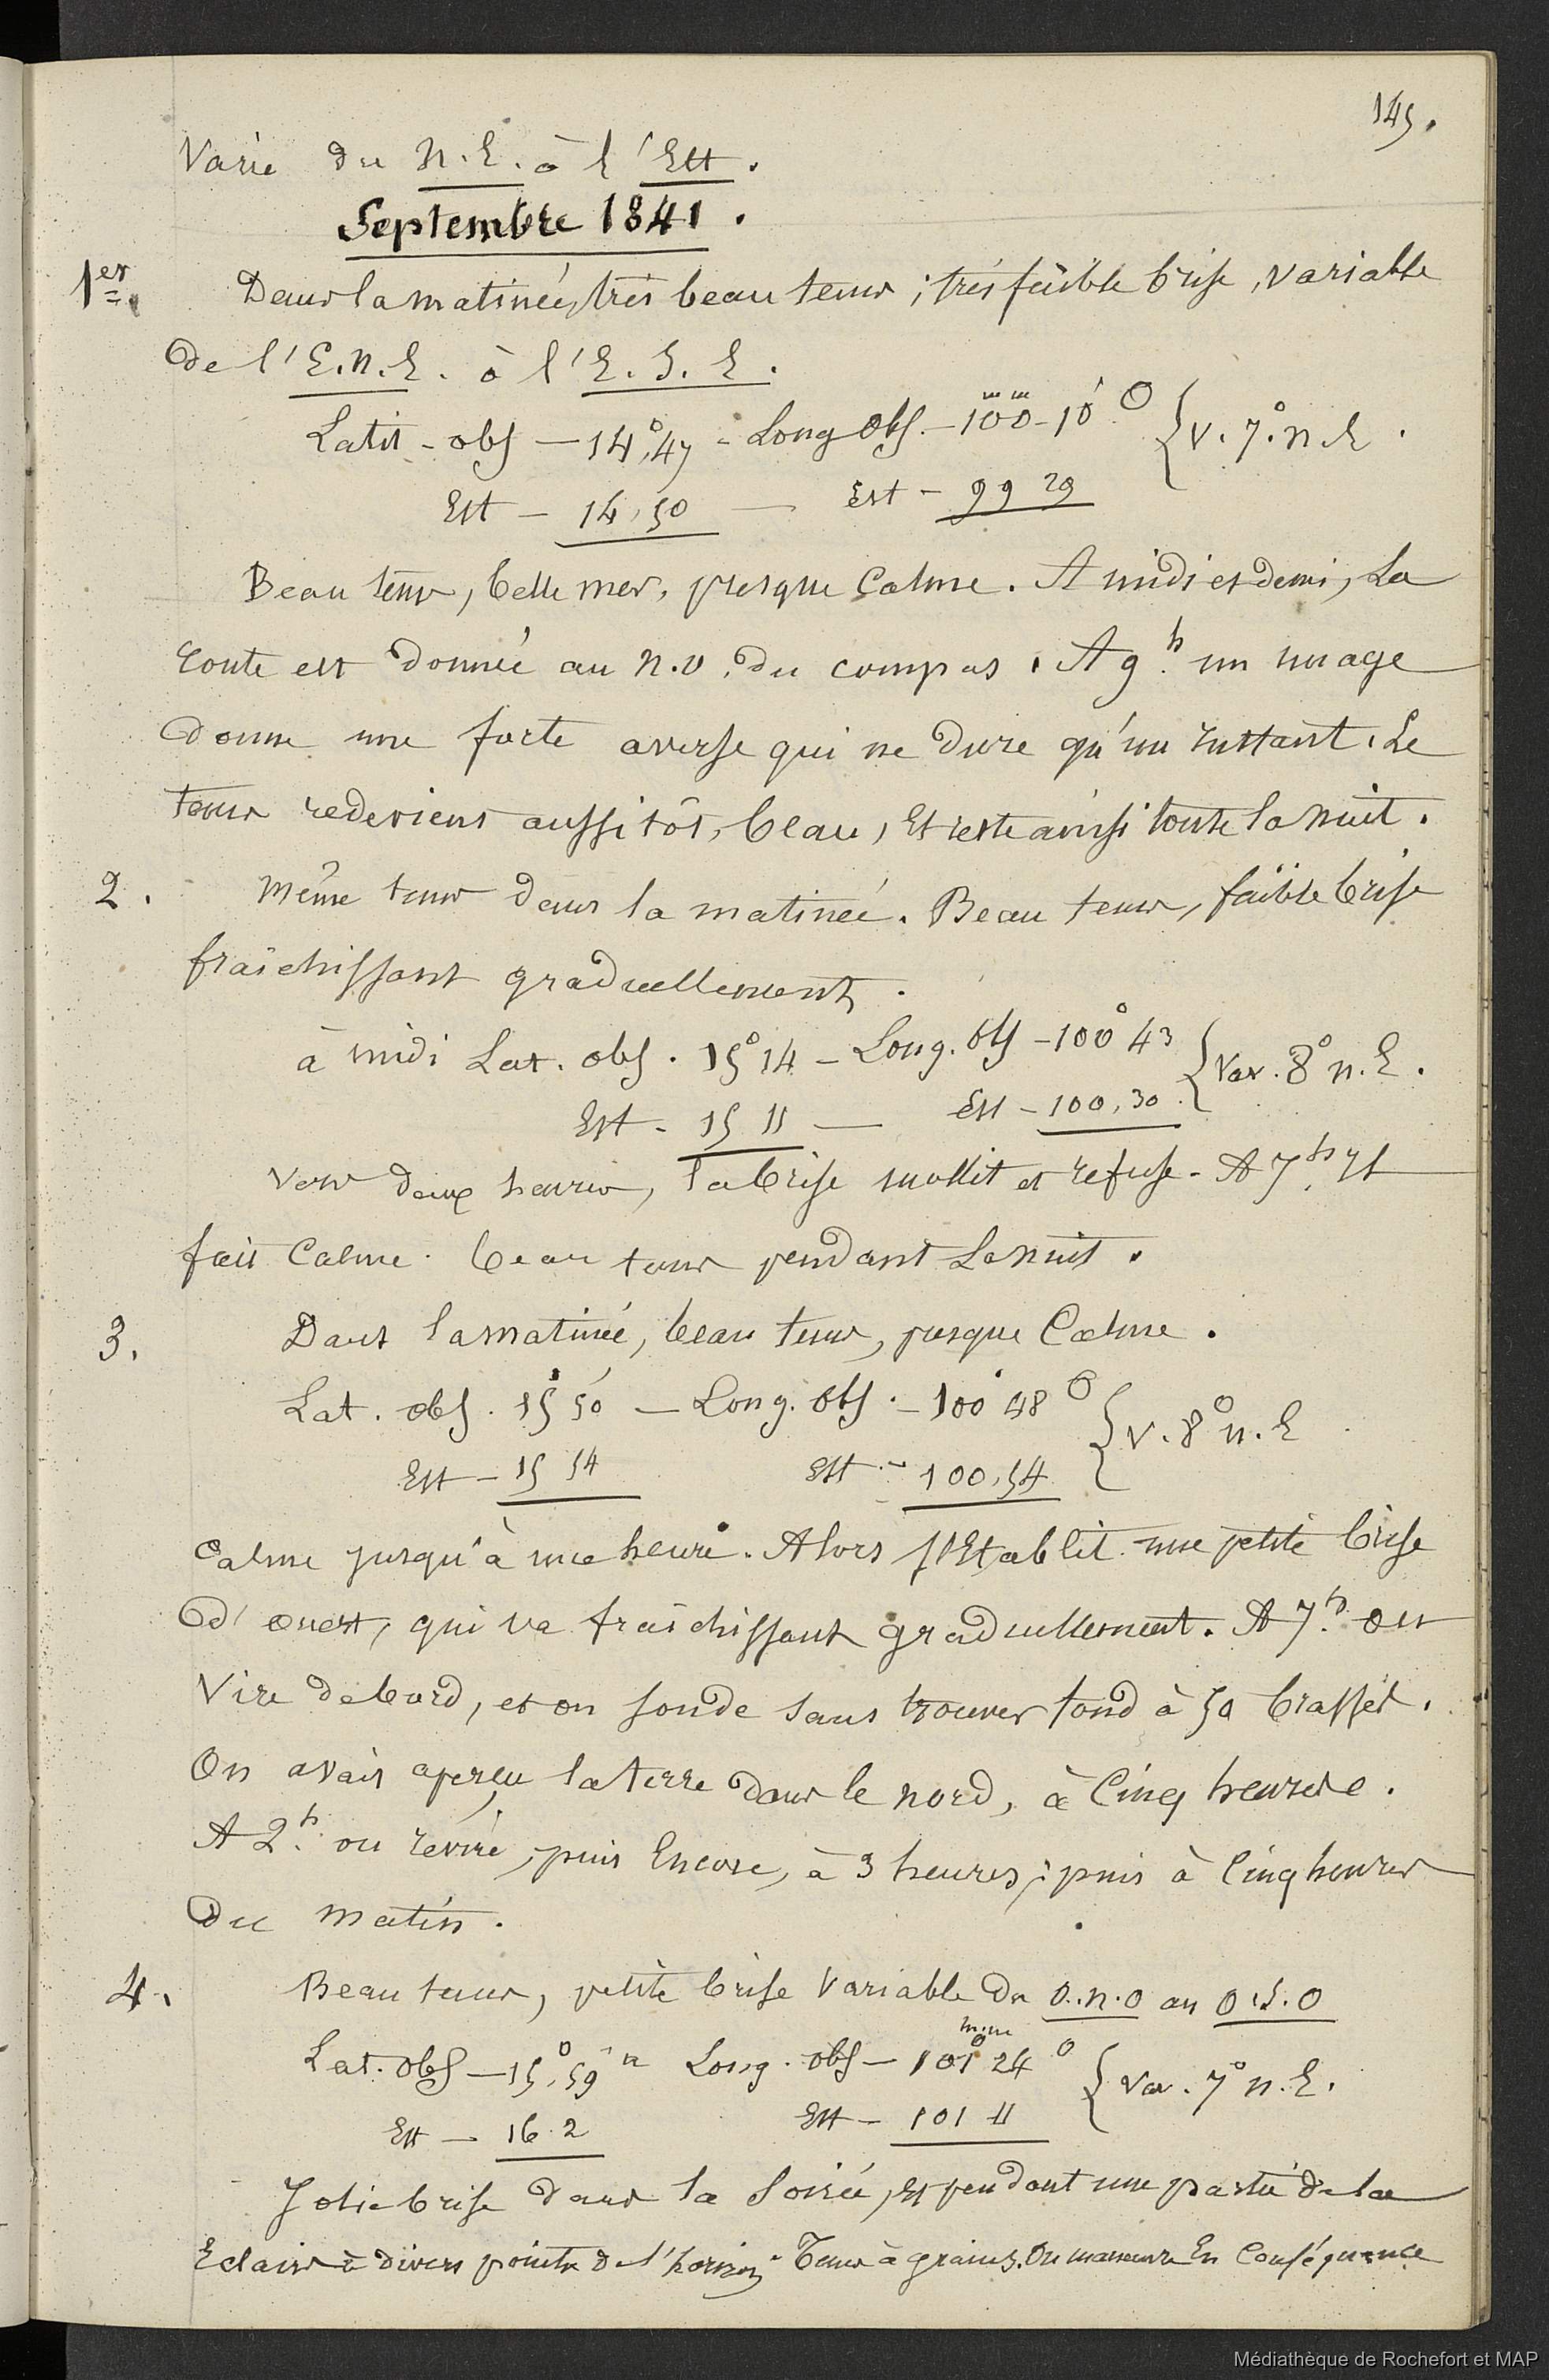 145.
Varie du N.E. à l'Est.
Septembre 1841.
1er. Dans la matinée, très beau tems ; très faible brise, variable
de l'E.N.E. à l'E.S.E.
Latit - obs — 14°,47 - Long obs. — 100 - 10' O { V. 7° N.E.
Est — 14,50 — Est — 99 29
Beau tems, belle mer, presque calme. A midi et demi, La
route est donnée au N.O. du compas. A 9h. un nuage
donne une forte averse qui ne dure qu'un instant. Le
tems redevient aussitôt, beau, et reste ainsi toute la nuit.
2. Même tems dans la matinée. Beau tems, faible brise
fraîchissant graduellement.
à midi Lat. obs. 15° 14 — Long. obs — 100° 43 { Var. 8° N.E.
Est - 15 11 — Est — 100,30
Vers deux heures, la brise mollit et refuse - A 7h. il
fait calme. beau tems pendant la nuit.
3. Dans la matinée, beau tems, presque calme.
Lat. obs. 15° 50' — Long. obs. — 100° 48 O { V. 8° N.E
Est — 15 54 Est — 100,54
calme jusqu'à une heure. Alors s'établit une petite brise
d'ouest, qui va fraîchissant graduellement. A 7h. on
vire de bord, et on sonde sans trouver fond à 50 brasses.
On avait aperçu la terre dans le nord, à cinq heures.
A 2h. on revire, puis encore, à 3 heures ; puis à cinq heures
du matin.
4. Beau tems, petite brise variable du O.N.O au O.S.O
Lat. obs — 15°,59' n Long. obs — 101° 24 O { Var. 7° N.E.
Est — 16.2 Est — 101 11
Jolie brise dans la soirée, et pendant une partie de la
Eclairs à divers points de l'horizon. Tems à grains. On manœuvre En Conséquence
Médiathèque de Rochefort et MAP